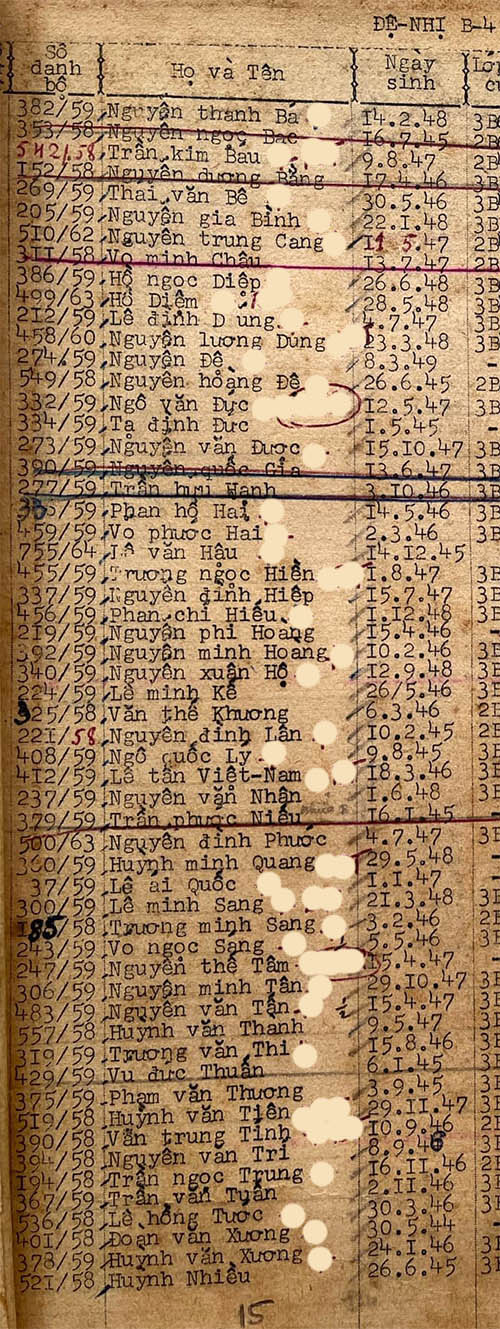 ĐỆ-NHỊ B-4
Số danh bộ Họ và Tên Ngày sinh
382/59 Nguyễn thanh Bá 14.2.48 3B
353/58 Nguyễn ngọc Bạc 16.7.45 2B
542/58 Trần kim Báu 9.8.47 2B
152/58 Nguyễn dương Bằng 17.4.46 3B
269/59 Thái văn Bê 30.5.46 3B
205/59 Nguyễn gia Bình 22.1.48 3B
510/62 Nguyễn trung Cang 11.5.47 2B
311/58 Võ minh Châu 13.7.47 2B
386/59 Hồ ngọc Diệp 26.6.48 3B
499/63 Hồ Diễm 28.5.48 3B
212/59 Lê đình Dũng 4.7.47 3B
458/60 Nguyễn lương Dũng 23.3.48 3B
274/59 Nguyễn Đê 8.3.49 -
549/58 Nguyễn hoàng Đê 26.6.45 2B
332/59 Ngô văn Đực 12.5.47 3B
334/59 Tạ định Đức 1.5.45 -
273/59 Nguyễn văn Được 15.10.47 3B
390/59 Nguyễn quốc Gia 13.6.47 3B
277/59 Trần hữu Hạnh 3.10.46 3B
/59 Phan hổ Hai 14.5.46 3B
459/59 Võ phước Hai 2.3.46 3B
755/64 Lê văn Hậu 14.12.45
455/59 Trương ngọc Hiền 1.8.47 3B
337/59 Nguyễn đình Hiếp 15.7.47 3B
456/59 Phan chí Hiếu 1.12.48 3B
219/59 Nguyễn phi Hoàng 15.4.46 -
392/59 Nguyễn minh Hoàng 10.2.46 3B
340/59 Nguyễn xuân Hộ 12.9.48 3B
224/59 Lê minh Kế 26/5.46 3B
325/58 Văn thế Khương 6.3.46 2B
221/58 Nguyễn đình Lân 10.2.45 2B
408/59 Ngô quốc Ly 9.8.45 3B
412/59 Lê tấn Việt-Nam 18.3.46 3B
237/59 Nguyễn văn Nhận 1.6.48 3B
379/59 Trần phước Niếu 16.1.45
500/63 Nguyễn đình Phước 4.7.47 3B
360/59 Huỳnh minh Quang 29.5.48 -
37/59 Lê ái Quốc 1.1.47 -
300/59 Lê minh Sang 21.3.48 3B
185/58 Trương minh Sang 3.2.46 2B
243/59 Võ ngọc Sang 5.5.46 3B
247/59 Nguyễn thế Tâm 15.4.47 -
306/59 Nguyễn minh Tân 29.10.47 3B
483/59 Nguyễn văn Tấn 15.4.47 3B
557/58 Huỳnh văn Thanh 9.5.47 3B
319/59 Trương văn Thi 15.8.46 3B
429/59 Vũ đức Thuần 6.1.45 3B
375/59 Phạm văn Thương 3.9.45 3B
519/58 Huỳnh văn Tiên 29.11.47 3B
390/58 Văn trung Tính 10.9.46 2B
394/58 Nguyễn văn Trí 8.9.46 -
194/58 Trần ngọc Trung 16.11.46 2B
367/59 Trần văn Tuấn 2.11.46 3B
536/58 Lê hồng Tước 30.3.46 3B
401/58 Đoạn văn Xương 30.5.44 -
378/59 Huỳnh văn Xương 24.1.46 3B
521/58 Huỳnh Nhiều 26.6.45 3B
15